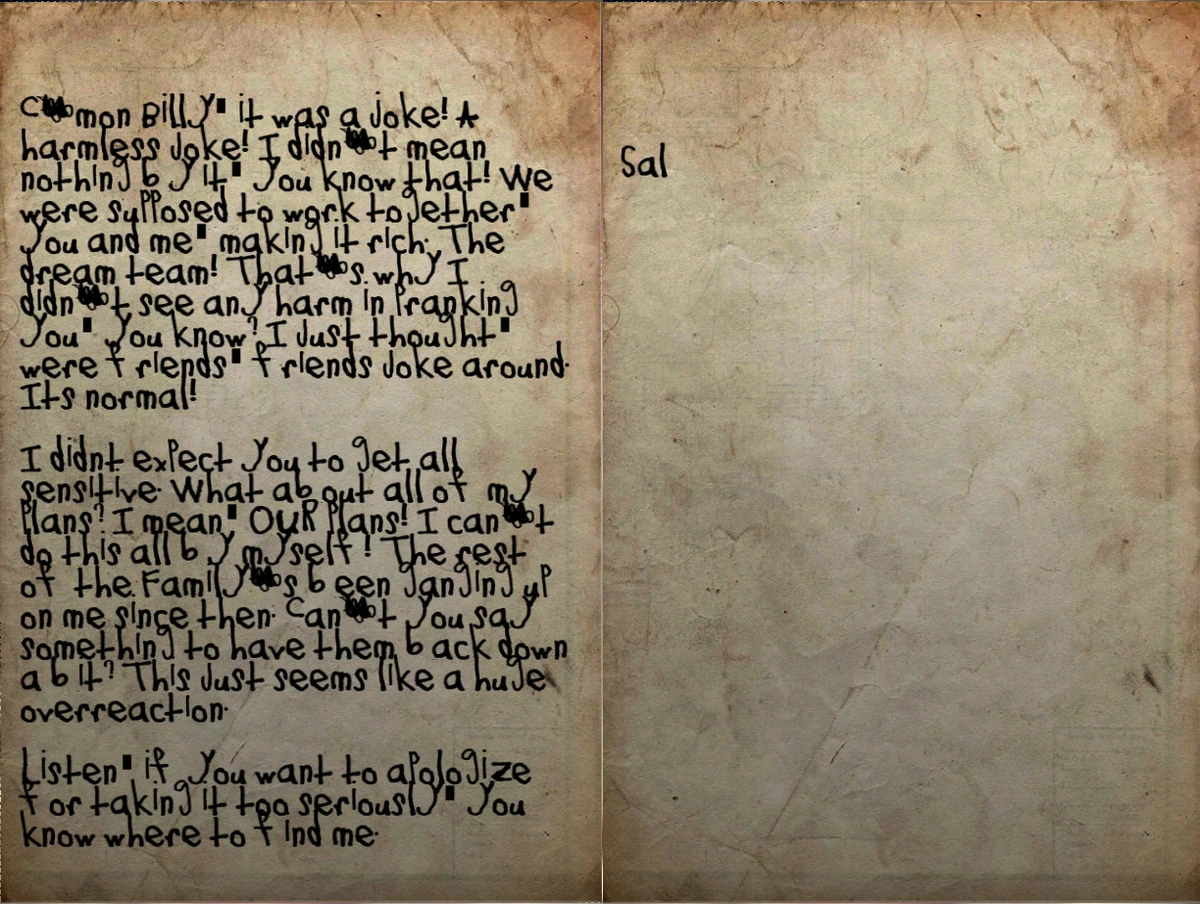 C'mon Billy, it was a joke! A
harmless joke! I didn't mean
nothing by it, you know that! We
were supposed to work together,
you and me, making it rich. The
dream team! That's why I
didn't see any harm in pranking
you, you know? I just thought,
were friends, friends joke around.
Its normal!
I didnt expect you to get all
sensitive. What about all of my
plans? I mean, OUR plans! I can't
do this all by myself! The rest
of the Family's been ganging up
on me since then. Can't you say
something to have them back down
a bit? This just seems like a huge
overreaction.
Listen, if you want to apologize
for taking it too seriously, you
know where to find me.
Sal